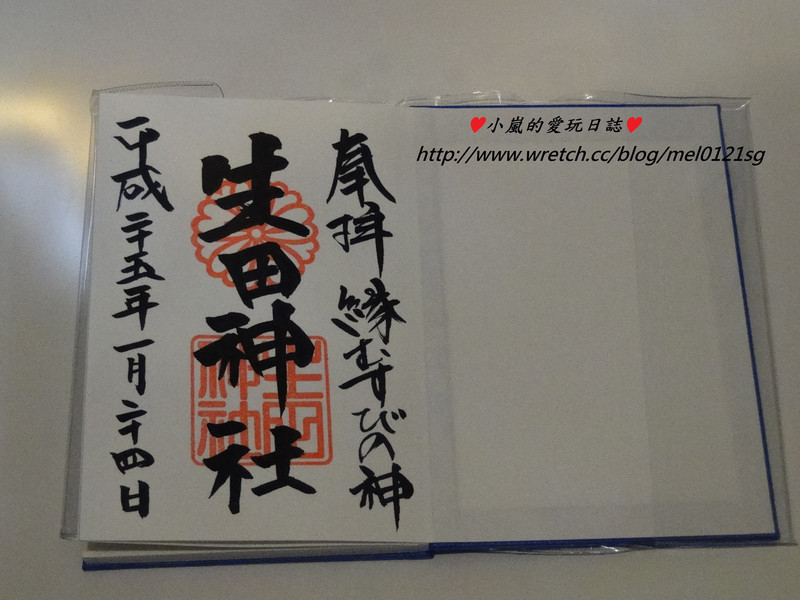 奉拝 縁むすびの神
生田神社
生田
神社
平成二十五年一月二十四日
♥小嵐的愛玩日誌♥
http://www.wretch.cc/blog/mel0121sg